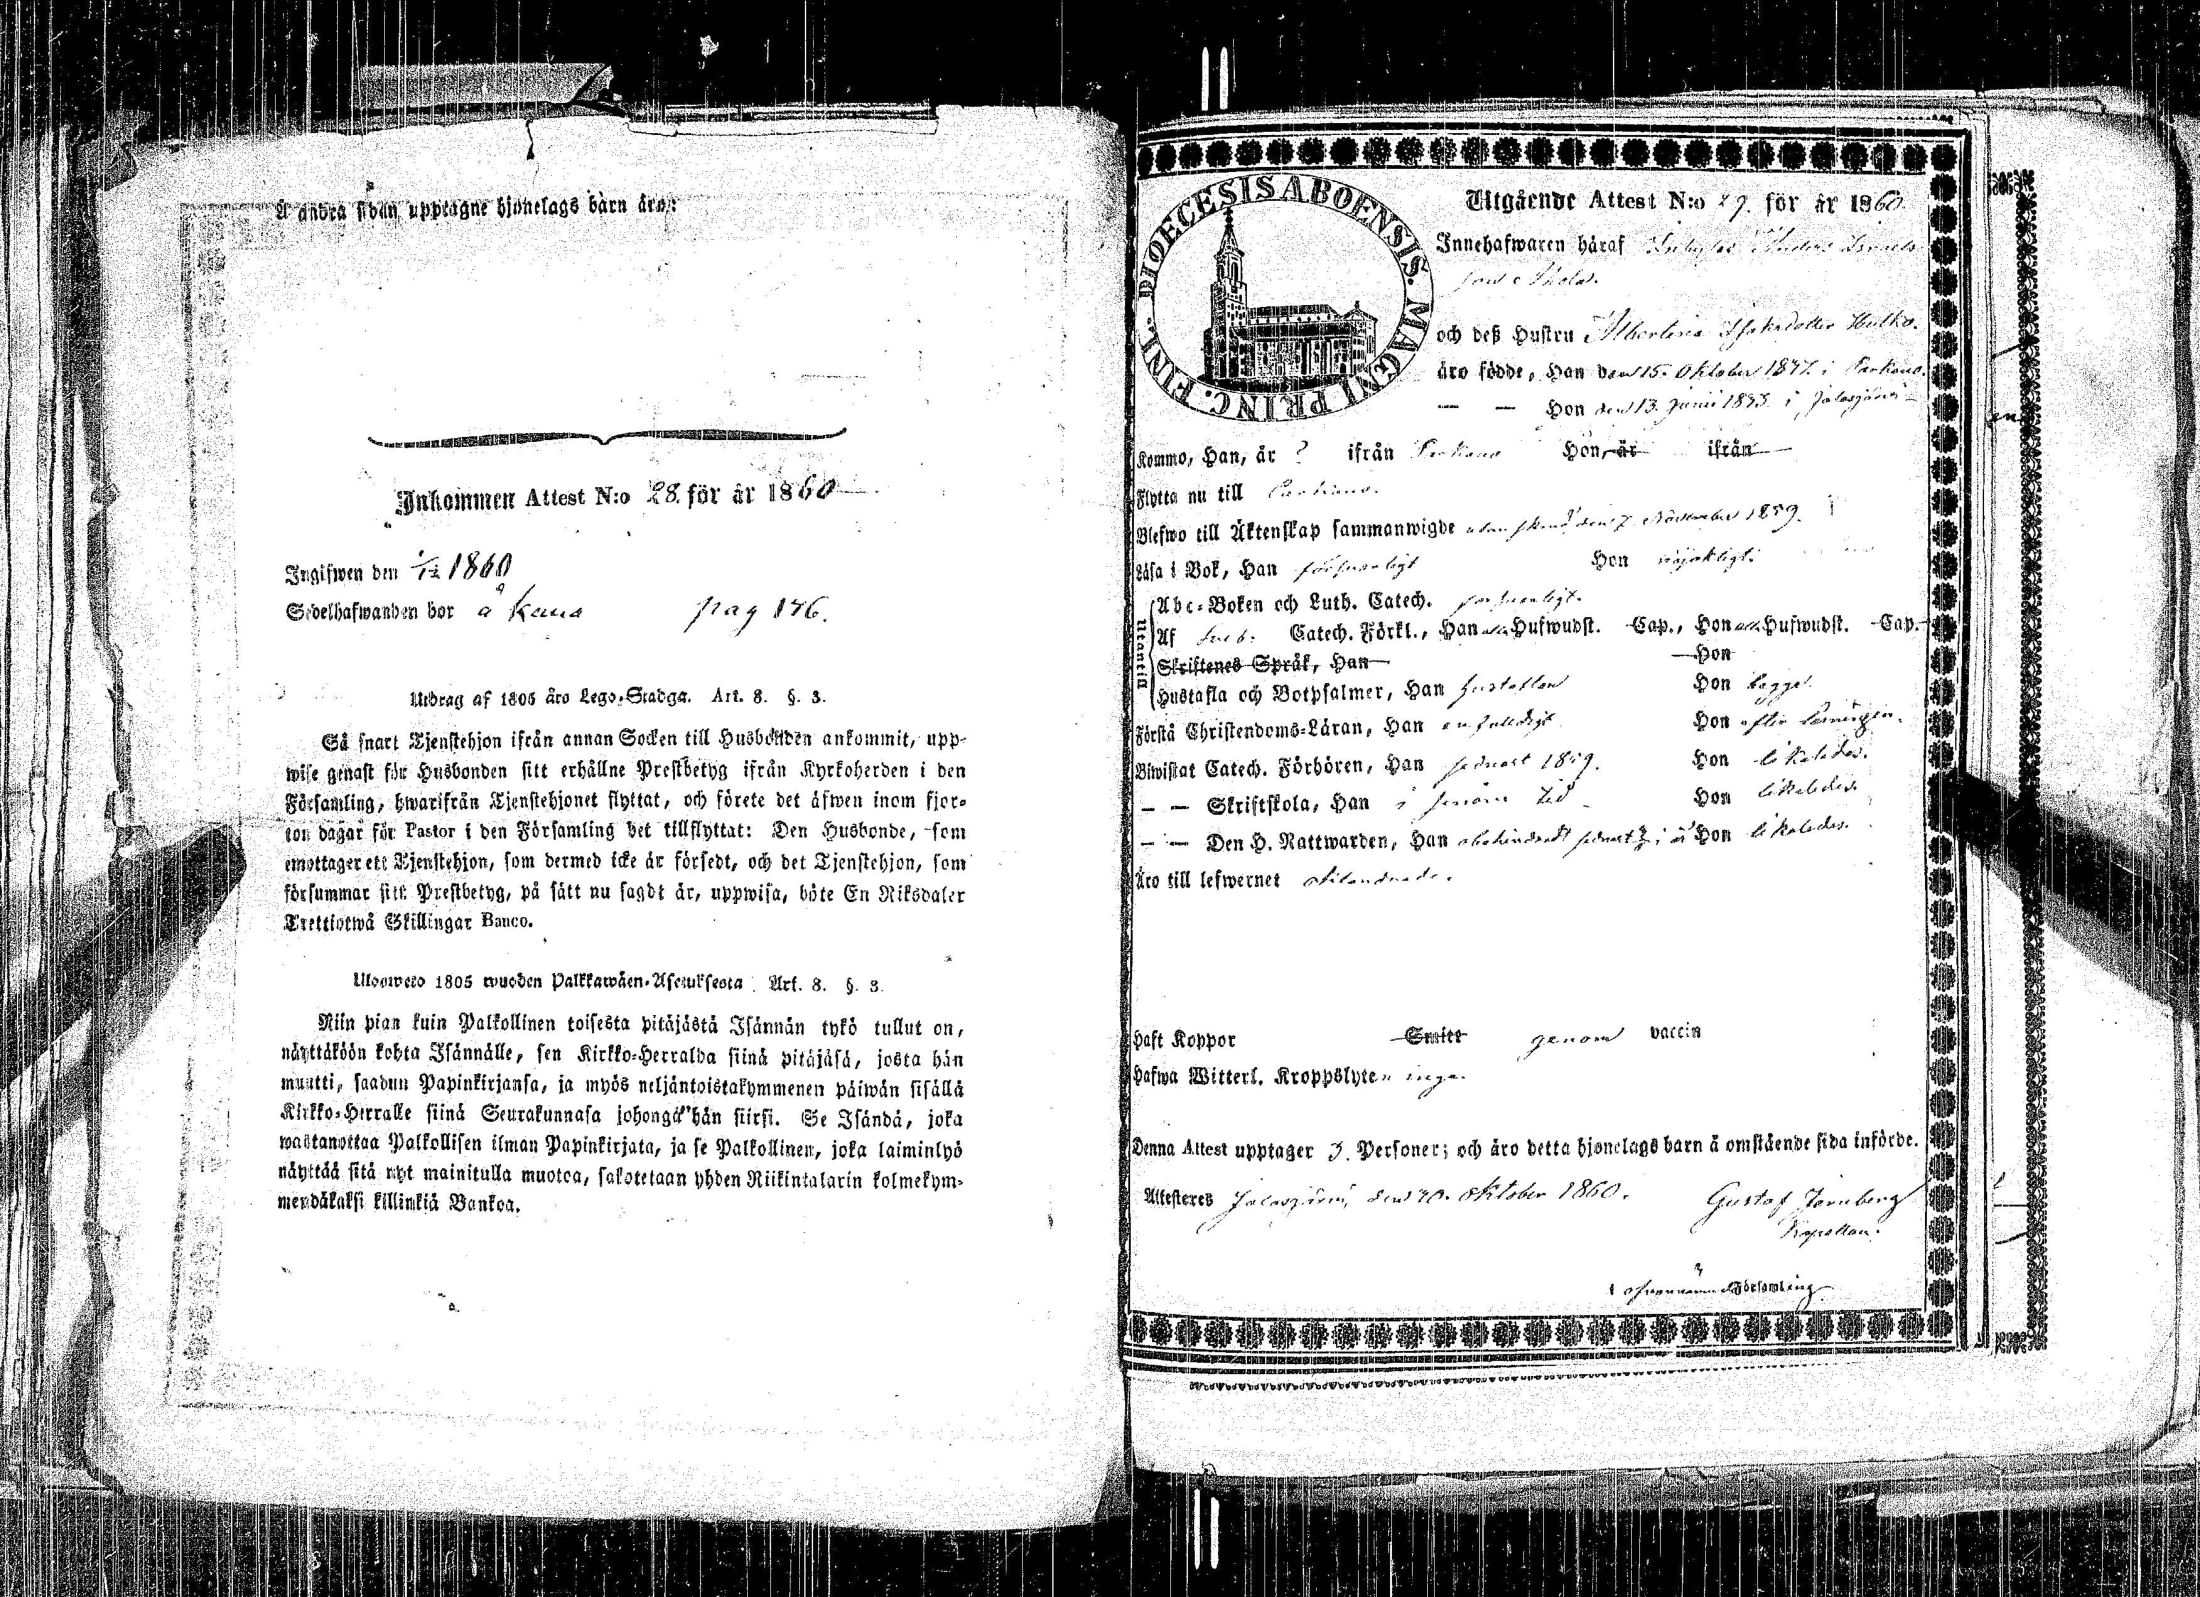 Å andra sidan upptagne hjonelags barn äro:
Inkommen Attest N:o 28. för år 1860
Ingifwen den 1/12 1860
Sedelhafwanden bor å Kana pag 176.
Utdrag af 1805 års Lego-Stadga. Art. 8. §. 3.
Så snart Tjenstehjon ifrån annan Socken till Husbonden ankommit, upp-
wise genast för Husbonden sitt erhållne Prestbetyg ifrån Kyrkoherden i den
Församling, hwarifrån Tjenstehjonet flyttat, och förete det äfwen inom fjor-
ton dagar för Pastor i den Församling det tillflyttat: Den Husbonde, som
emottager ett Tjenstehjon, som dermed icke är försedt, och det Tjenstehjon, som
försummar sitt Prestbetyg, på sätt nu sagdt är, uppwisa, böte En Riksdaler
Trettiotwå Skillingar Banco.
Uloswweto 1805 wuoden Palkkawäen-Asetuksesta Art. 8. §. 3.
Niin pian kuin Palkollinen toisesta pitäjästä Isännän tykö tullut on,
näyttäköön kohta Isännälle, sen Kirkko-Herralda siinä pitäjäsä, josta hän
muutti, saadun Papinkirjansa, ja myös neljäntoistakymmenen päiwän sisällä
Kirkko-Herralle siinä Seurakunnasa johonga hän siirsi. Se Isändä, joka
wastanottaa Palkollisen ilman Papinkirjata, ja se Palkollinen, joka laiminlyö
näyttää sitä nyt mainitulla muotoa, sakotetaan yhden Riikintalarin kolmekym-
mendäkaksi killinkiä Bankoa.
DIOECESIS ABOENSIS. MAGNI PRINC. FINL.
Utgående Attest N:o 29. för år 1860.
Innehafwaren häraf Inhyses Anders Israels
son Skola.
och deß Hustru Albertina Isaksdotter Hutko.
äro födde, Han den 15. Oktober 1837. i Parkano.
— — Hon den 13. Junii 1835. i Jalasjärvi
Kommo, Han, år ? ifrån Parkano Hon, år ifrån
Flytta nu till Parkano.
Blefwo till Äktenskap sammanwigde den 7 November 1859.
Läsa i Bok, Han försvarligt Hon nöjaktigt.
Utantill
Abc-Boken och Luth. Catech. försvarligt.
Af Sveb. Catech. Förkl., Han alla Hufwudst. Cap., Hon alla Hufwudst. Cap.
Skriftenes Språk, Han Hon
Hustafla och Botpsalmer, Han hustaflan Hon begge.
Förstå Christendoms-Läran, Han enfaldigt Hon efter läsningen.
Biwistat Catech. Förhören, Han sednast 1859. Hon likaledes.
— — Skriftskola, Han i sinom tid Hon likaledes.
— — Den H. Nattwarden, Han obehindradt sednast i år Hon likaledes.
Äro till lefwernet oklandrade.
Haft Koppor Smitt genom vaccin
Hafwa Witterl. Kroppslyten inga.
Denna Attest upptager 3. Personer; och äro detta hjonelags barn å omstående sida införde.
Attesteres Jalasjärvi, den 20. Oktober 1860. Gustaf Järnberg
Kapellan.
i ofvannämnde Församling